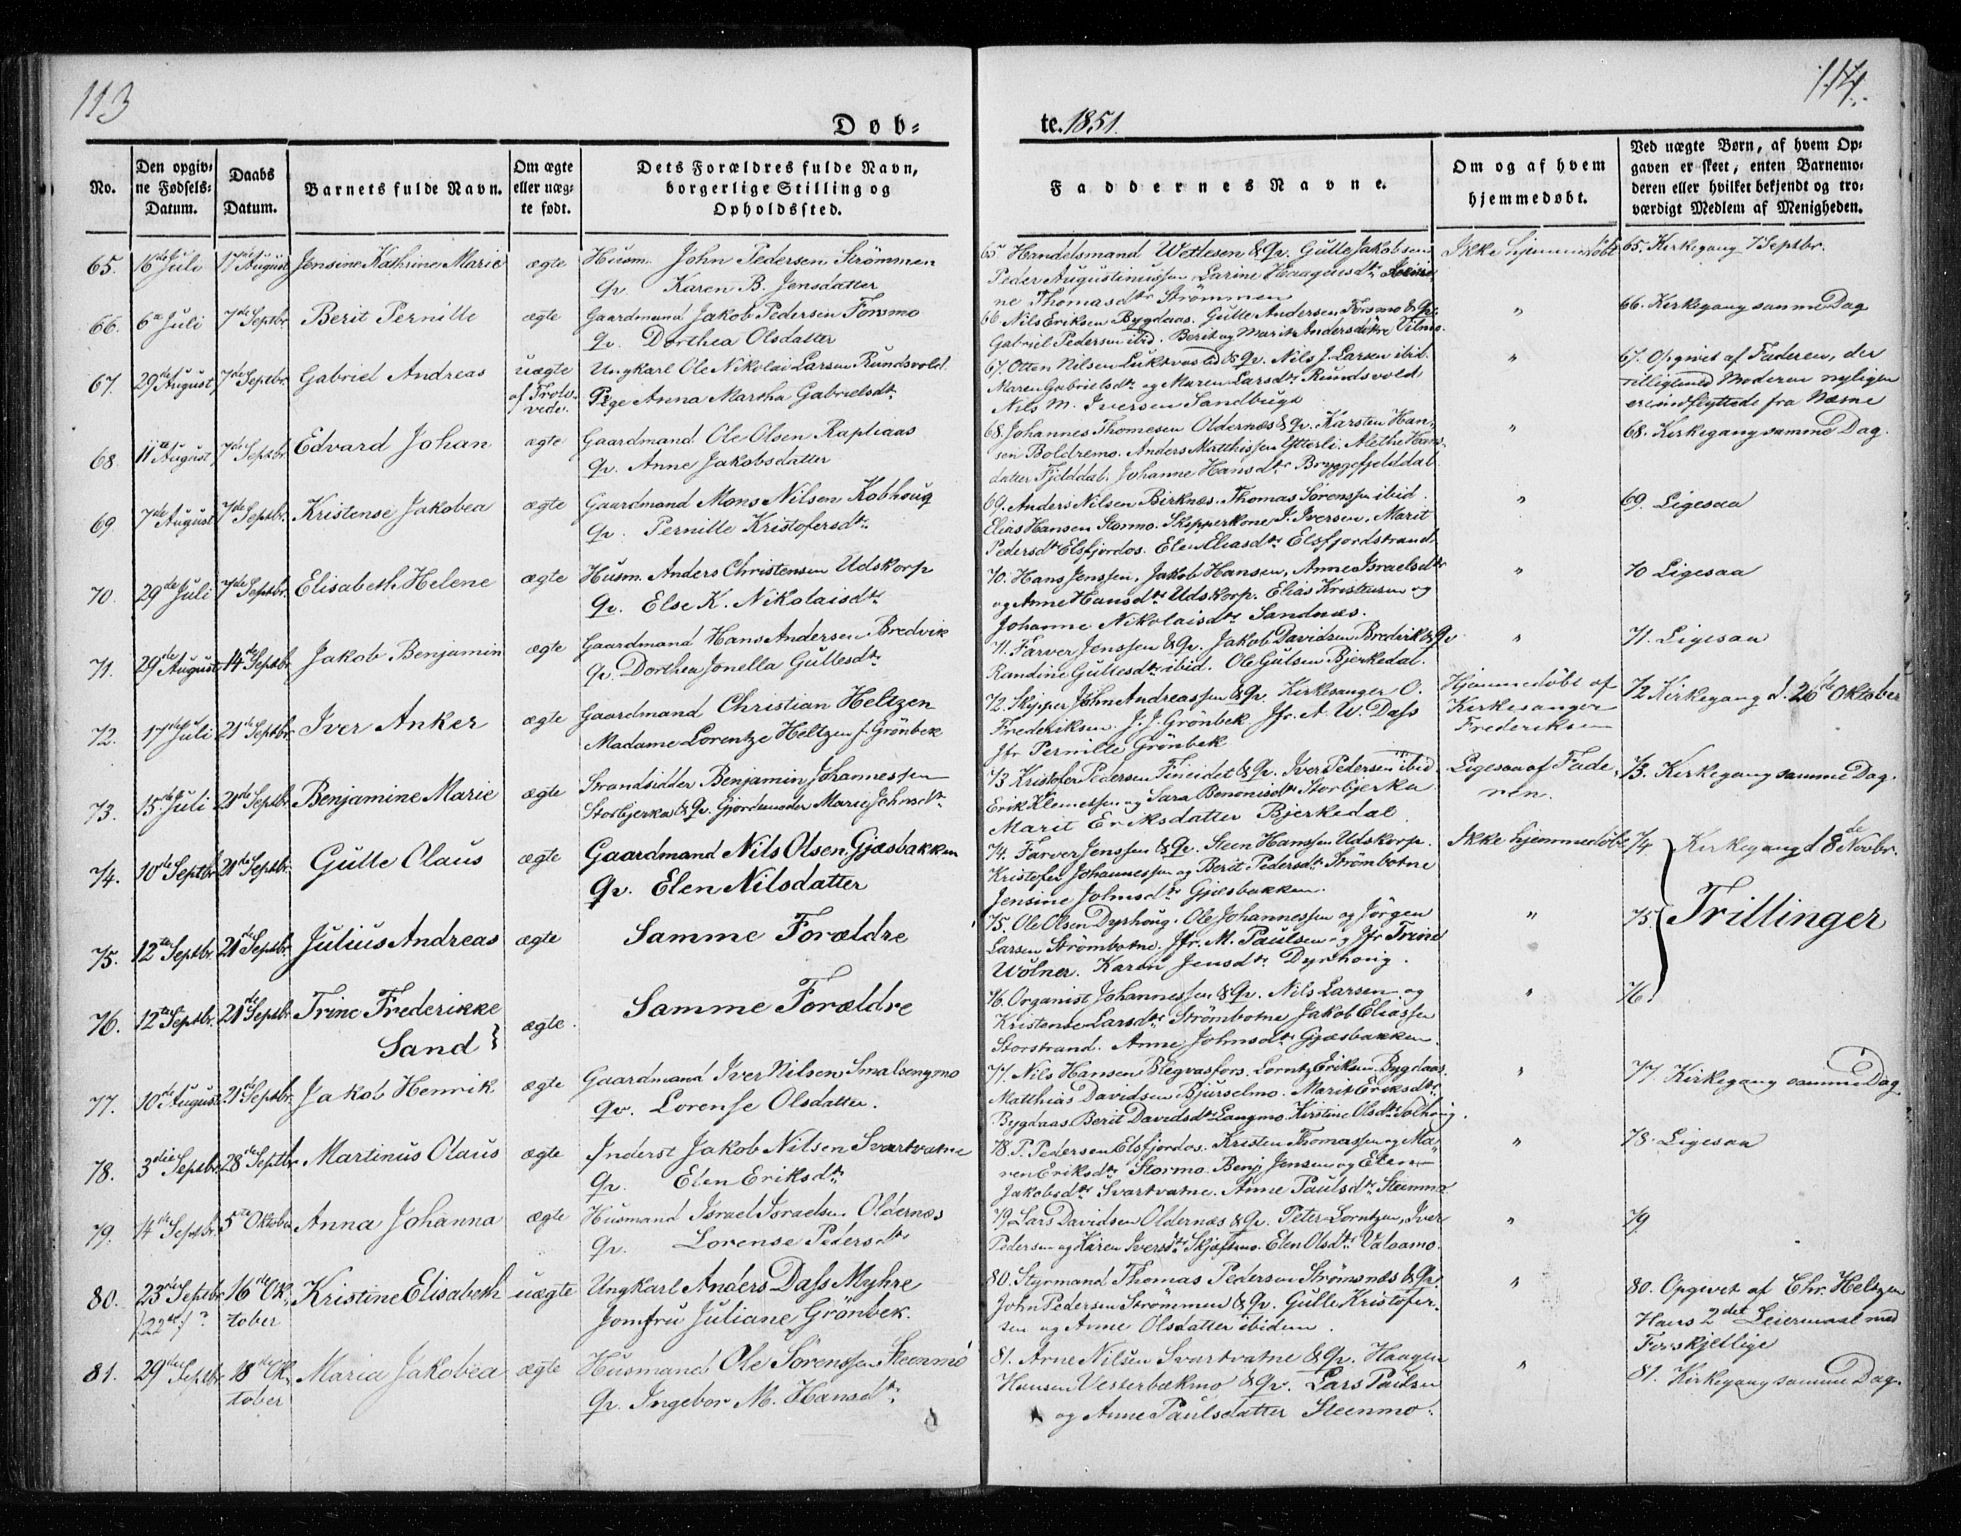 113
114.
Døb-
te. 1851.
No.
Den opgivne Fødsels-Datum.
Daabs Datum.
Barnets fulde Navn.
Om ægte eller uægte født.
Dets Forældres fulde Navn, borgerlige Stilling og Opholdssted.
Faddernes Navne.
Om og af hvem hjemmedøbt.
Ved uægte Børn, af hvem Opgaven er skeet, enten Barnemoderen eller hvilket bekjendt og troværdigt Medlem af Menigheden.
65. 16de Juli 17de August Jensine Kathrine Marie ægte Husm. John Pedersen Strømmen
Qv. Karen B. Jensdatter
65 Handelsmand Wetlesen & Qv. Gulle Jakobsen
Peder Augustinussen Larine Haagensdtr
ne Thomasdtr Strømmen
Ikke hjemmedøbt
65. Kirkegang 7 Septbr.
66. 6te Juli 7de Septbr Berit Pernille ægte Gaardmand Jakob Pedersen Forsmo
Qv. Dorthea Olsdatter
66 Nils Eriksen Bygdaas. Gulle Andersen Forsmo & Qv.
Gabriel Pedersen ibid. Berit og Marit Andersdøtre Vilmo.
"
66. Kirkegang samme Dag
67. 29de August 7de Septbr. Gabriel Andreas uægte
af Trolovede.
Ungkarl Ole Nikolai Larsen Rundsvold
Pige Anna Martha Gabrielsdtr
67. Otten Nilsen Luktvasled & Qv. Nils J. Larsen ibid.
Maren Gabrielsdtr og Maren Larsdtr Rundsvold,
Nils M. Iversen Sandbugt
"
67. Opgivet af Faderen, der
tilligemed Moderen nyligen
er indflyttede fra Næsne
68. 11te August 7de Septbr. Edvard Johan ægte Gaardmand Ole Olsen Rapliaas
Qv. Anne Jakobsdatter
68. Johannes Thomesen Oldernæs & Qv. Karsten Han-
sen Boldremo. Anders Matthissen Ytterli. Alethe Hans-
datter Fjelddal. Johanne Hansdtr Bryggefjelddal
"
68. Kirkegang samme Dag.
69. 7de August 7de Septbr. Kristense Jakobea ægte Gaardmand Mons Nilsen Kobhoug
Qv. Pernille Kristofersdtr
69. Anders Nilsen Birknæs. Thomas Sørenssen ibid.
Elias Hansen Stormo. Skipperkone J. Iversen. Marit
Pedersdtr Elsfjordos. Elen Eliasdtr Elsfjordstrand.
"
69. Ligesaa
70. 29de Juli 7de Septbr. Elisabeth Helene ægte Husm. Anders Christensen Udskorp
Qv. Else K. Nikolaisdtr
70. Hans Jenssen, Jakob Hansen, Anne Israelsdtr
og Anne Hansdtr Udskorp. Elias Kristensen og
Johanne Nikolaisdtr Sandnæs.
"
70 Ligesaa
71. 29de August 14de Septbr. Jakob Benjamin ægte Gaardmand Hans Andersen Bredvik
Qv. Dorthea Jonella Gullesdtr
71. Farver Jenssen & Qv. Jakob Davidsen Bredvik & Qv
Randine Gullesdtr ibid. Ole Gulsen Bjerkedal.
"
71. Ligesaa
72. 17de Juli 21de Septbr. Iver Anker ægte Gaardmand Christian Heltzen
Madame Lorentze Heltzen f. Grönbek
72. Skipper John Andreassen & Qv. Kirkesanger O.
Frederiksen. J. J. Grönbek Jfr. A. W. Dass
Jfr Pernille Grönbek
Hjemmedøbt af
Kirkesanger
Frederiksen
72 Kirkegang d. 26de Oktober
73. 15de Juli 21de Septbr. Benjamine Marie ægte Strandsidder Benjamin Johannessen
Storbjerka & Qv. Gjordemoder Marie Johnsdtr
73 Kristofer Pedersen Fineidet & Qv. Iver Pedersen ibid.
Erik Klemessen og Sara Benonisdtr Storbjerka
Marit Eriksdatter Bjerkedal.
Ligesaa af Fade-
ren.
73. Kirkegang samme Dag.
74. 10de Septbr 21de Septbr. Gulle Olaus ægte Gaardmand Nils Olsen Gjæsbakken
Qv. Elen Nilsdatter
74. Farver Jenssen & Qv. Steen Hanssen Udskorp.
Kristofer Johannessen og Berit Pedersdtr Strömbotne
Jensine Johnsdtr Gjæsbakken.
Ikke hjemmedøbt
74 Kirkegang d 8de Novbr.
75. 12te Septbr. 21de Septbr. Julius Andreas ægte Samme Forældre
75. Ole Olsen Dyrhoug. Ole Johannessen og Jörgen
Larsen Strömbotne. Jfr. M. Paulsen og Jfr Trine
Wolner. Karen Jensdtr Dyrhoug.
"
75. Trillinger
76. 12te Septbr. 21de Septbr. Trine Frederikke
Sand
ægte. Samme Forældre
76. Organist Johannessen & Qv. Nils Larsen og
Kristense Larsdtr Strömbotne Jakob Eliassen
Storstrand. Anne Johnsdtr Gjæsbakken.
"
76.
77. 10de August 21de Septbr. Jakob Henrik ægte Gaardmand Iver Nilsen Smalsengmo
Qv. Lorense Olsdatter.
77. Nils Hansen Blegvasfors. Lorntz Eriksen Bygdaas.
Matthias Davidsen Bjurselmo. Marit Eriksdtr
Bygdaas. Berit Davidsdtr Langmo. Kirstine Olsdtr
"
77. Kirkegang samme Dag
78. 3die Septbr. 28de Septbr. Martinus Olaus ægte Inderst Jakob Nilsen Svartvatne
Qv. Elen Eriksdtr
78. P. Pedersen Elsfjordos. Kristen Thomassen og Ma-
ren Eriksdtr Stormo. Benj. Jensen og Elen
Jakobsdtr Svartvatne. Anne Paulsdtr Steinmo
"
78. Ligesaa
79. 14de Septbr. 5te Oktober Anna Johanna ægte Husmand Israel Israelsen Oldernæs
Qv. Lorense Pedersdtr
79 Lars Davidsen Oldernæs & Qv. Peter Lorntzen, Iver
Pedersen og Karen Iversdtr Skjæfsmo. Elen Olsdtr Valaamo.
"
79
80. 23de Septbr
/22de/?
16de Ok-
tober
Kristine Elisabeth uægte Ungkarl Anders Dass Myhre
Jomfru Juliane Grönbek.
80. Styrmand Thomas Pedersen Strömsnæs & Qv.
John Pedersen Strömmen & Qv. Gulle Kristofer-
sen og Anne Olsdatter ibidem.
"
80. Opgivet af Chr. Heltzen
Hans 2det Leiermaal med
Forskjellige
81. 29de Septbr 18de Ok-
tober
Maria Jakobea ægte Husmand Ole Sörenssen Steenmo
Qv. Ingebor M. Hansdtr
81. Arne Nilsen Svartvatne & Qv. Haagen
Hansen Vesterbækmo & Qv. Lars Paulsen
og Anne Paulsdatter Steenmo.
"
81. Kirkegang samme Dag.